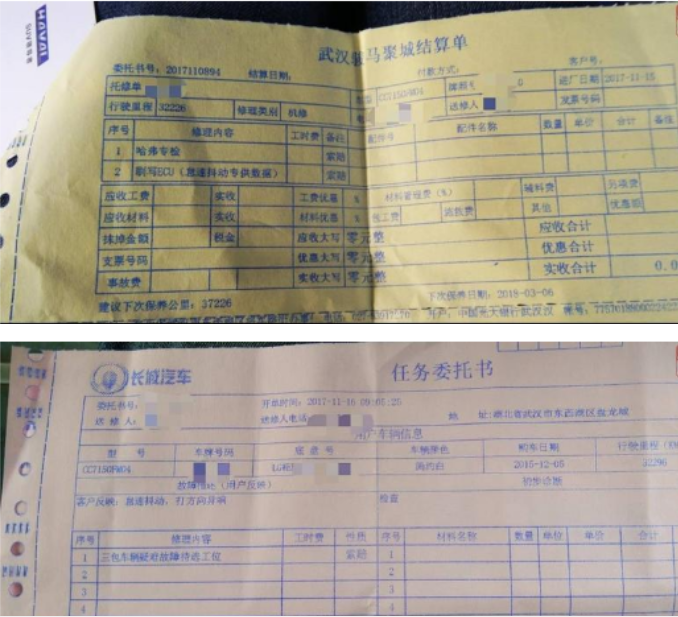 HAVAL
武汉骏马聚城结算单
委托书号：2017110894 结算日期： 付款方式： 客户号：
托修单 CC7150FM04 牌照号 0 进厂日期 2017-11-15
行驶里程 32226 修理类别 机修 送修人 发票号码
序号 修理内容 工时费 备注 配件号 配件名称 数量 单价 合计 备注
1 哈弗专检 索赔
2 刷写ECU（怠速抖动专供数据） 索赔
应收工费 实收 工费优惠 % 材料管理费（%） 辅料费 另项费
应收材料 实收 材料优惠 % 施救费 其他 优惠额
抹掉金额 税金 应收大写 零元整 应收合计
支票号码 优惠大写 零元整 优惠合计
事故费 实收大写 零元整 实收合计 0.0
建议下次保养公里：37226 下次保养日期：2018-03-06
长城汽车 任务委托书
委托书号： 开单时间：2017-11-16
送修人： 送修人电话 地 址：湖北省武汉市东西湖区盘龙城
用户车辆信息
型 号 车牌号码 底盘号 车辆颜色 购车日期 行驶里程
CC7150FM04 简约白 2015-12-05 32296
故障描述（用户反映） 初步诊断
客户反映：怠速抖动，打方向异响 检查
序号 修理内容 工时费 性质 序号 材料名称 数量 单位 单价 合计
1 三包车辆疑难故障待选工位 索赔 1
2 2
3 3
4 4